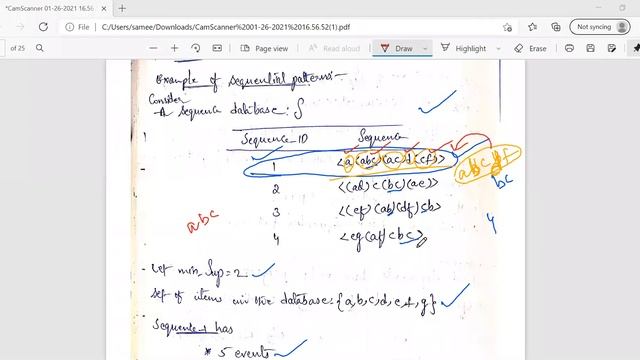 *CamScanner 01-26-2021 16.56.52
File
C:/Users/samee/Downloads/CamScanner%2001-26-2021%2016.56.52(1).pdf
Not syncing
of 25
Page view
Read aloud
Draw
Highlight
Erase
Example of sequential patterns-
Consider
A sequence database: S
Sequence_ID Sequence
1 <a(abc)(ac)d(cf)>
2 <(ad)c(bc)(ae)>
bc
3 <(ef)(ab)(df)cb>
abc
4
4 <eg(af)cbc>
- Let min_Sup=2
- Set of items in the database: {a,b,c,d,e,f,g}
Sequence-1 has
* 5 events